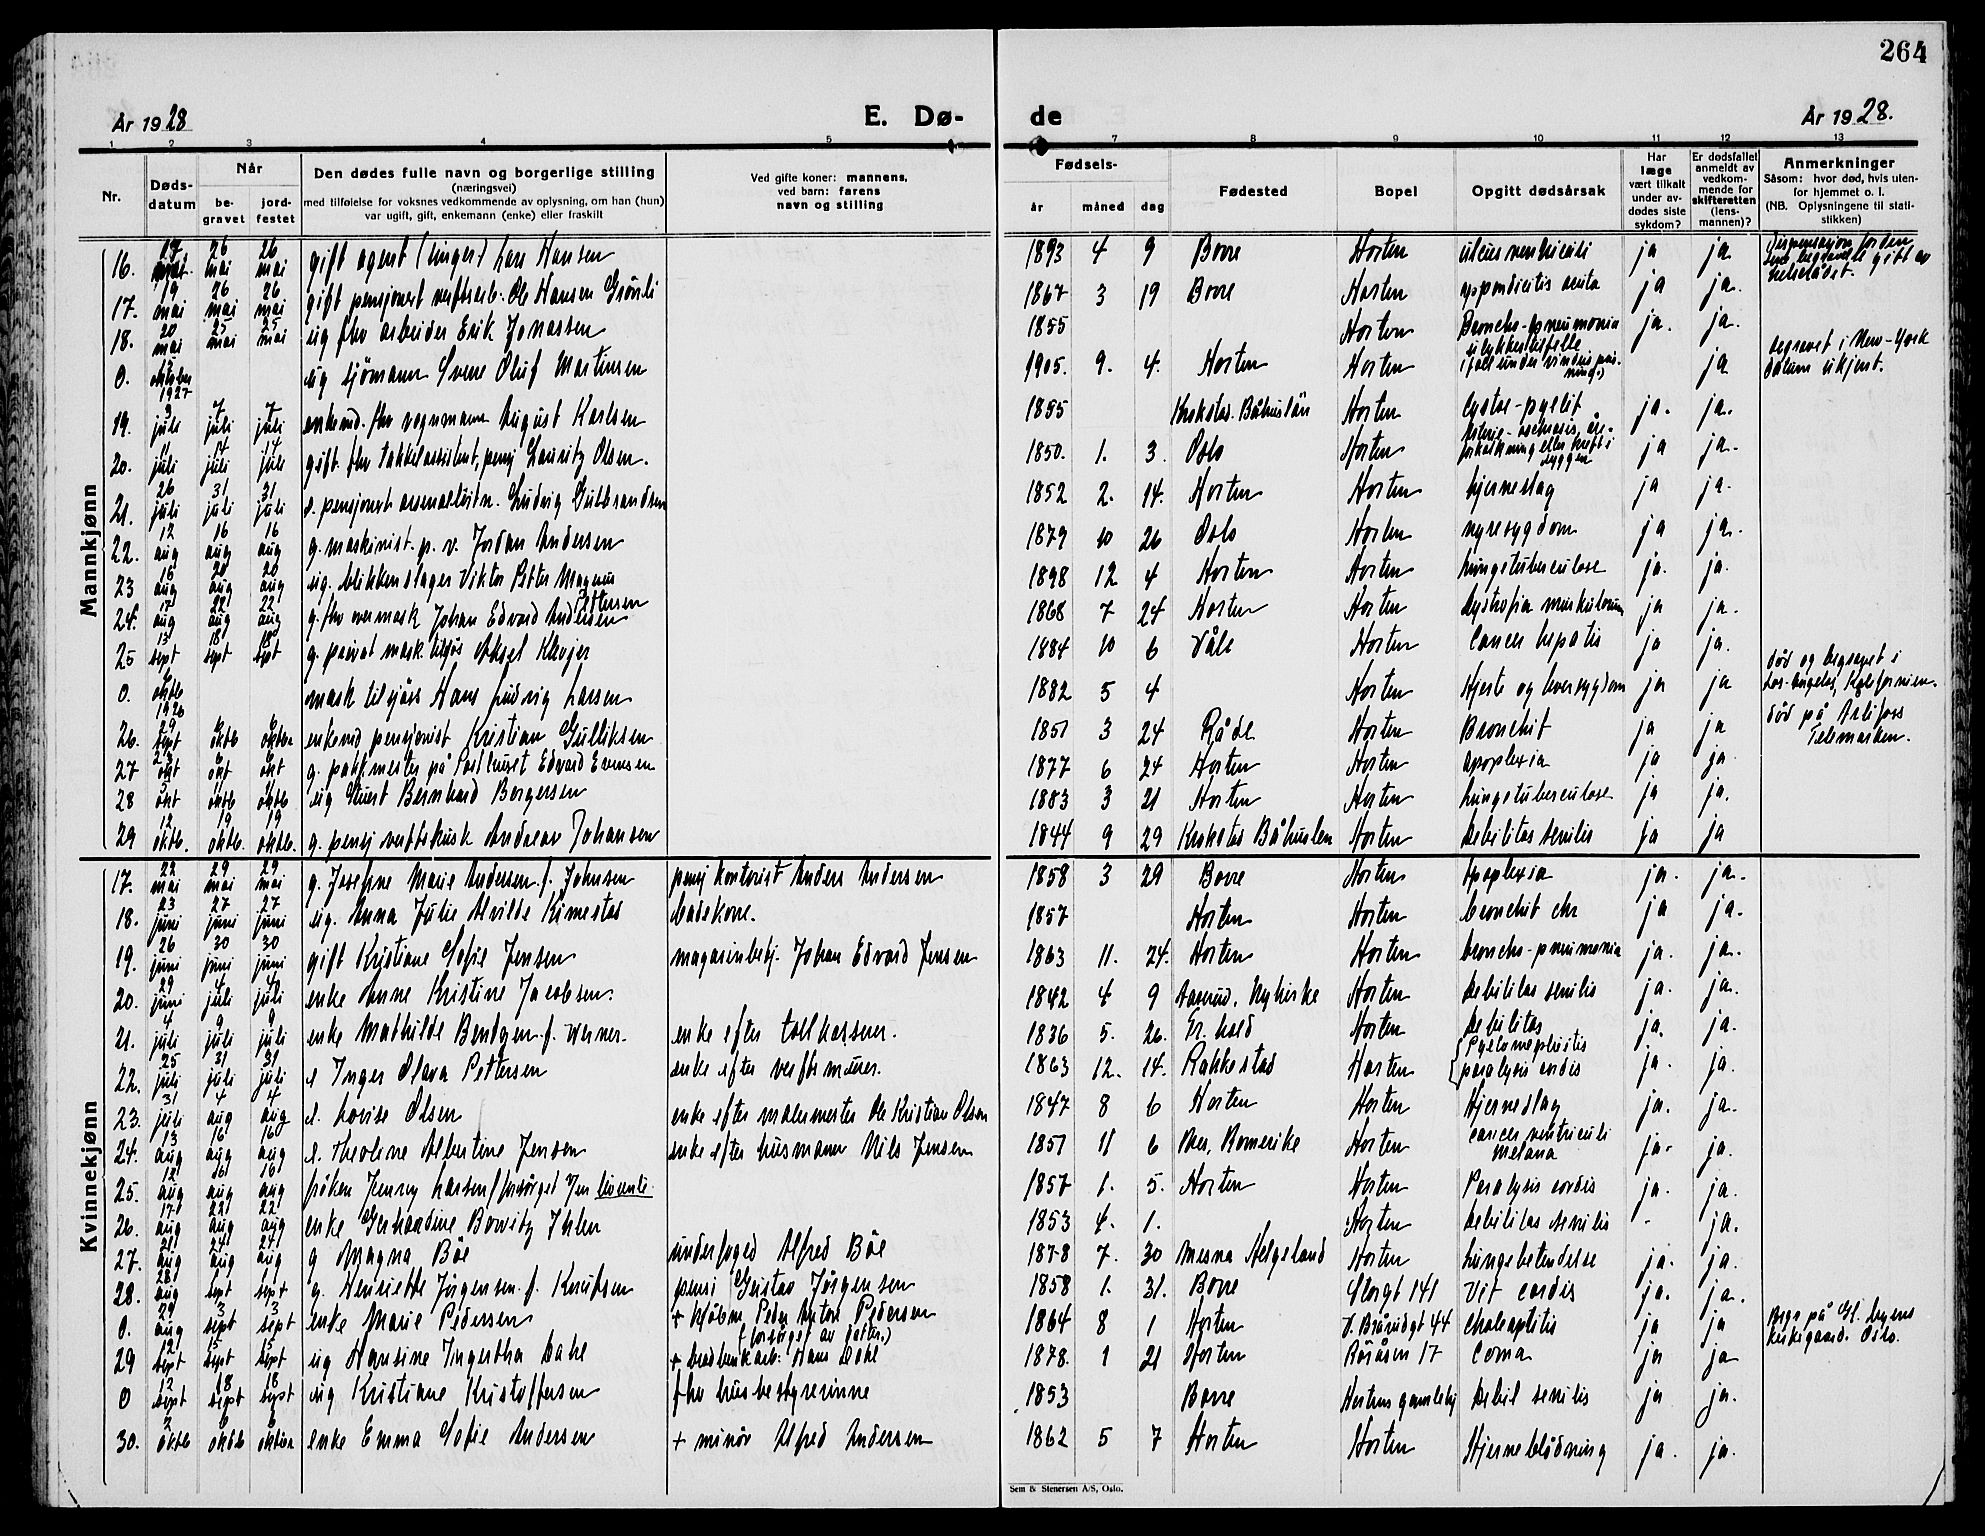 264
År 1928
E. Dø-
de
År 1928.
1 2 3 4 5 7 8 9 10 11 12 13
Nr.
Døds-
datum
Når
be-
gravet
jord-
festet
Den dødes fulle navn og borgerlige stilling
(næringsvei)
med tilføielse for voksnes vedkommende av oplysning, om han (hun)
var ugift, gift, enkemann (enke) eller fraskilt
Ved gifte koner: mannens,
ved barn: farens
navn og stilling
Fødsels-
år måned dag
Fødested
Bopel
Opgitt dødsårsak
Har
læge
vært tilkalt
under av-
dødes siste
sykdom?
Er dødsfallet
anmeldt av
vedkom-
mende for
skifteretten
(lens-
mannen)?
Anmerkninger
Såsom: hvor død, hvis uten-
for hjemmet o. l.
(NB. Oplysningene til stati-
stikken)
Mannkjønn
16. 17 26 mai 26 mai gift agent Hansen 1893 4 9 Borre Horten ja ja
17. 19 mai 26 mai 26 mai gift pensjonert Ole Hansen Grönli 1867 3 19 Borre Horten appendicitis acuta ja ja.
18. 20 mai 25 mai 25 mai ug fhv arbeider Erik Jonassen 1855 Horten Broncho-pneumonia ja. ja.
0. oktober 1927 ug sjömann Sverre Oluf Martinsen 1905. 9. 4. Horten Horten ja begravet i New-York
datum ukjent.
19. 3 juli 7 juli 7 juli enkemd. fhv vognmann August Karlsen 1855 Krokstad. Båhuslän Horten Cystoe-pyelit ja. ja.
20. 11 juli 14 juli 14 juli gift fhv takkelassistent, pensj Lauritz Olsen. 1850. 1. 3. Oslo Horten ja ja.
21. 26 juli 31 juli 31 juli e. pensjonert Ludvig Gulbrandsen 1852 2. 14. Horten Horten hjerneslag ja ja.
22. 12 aug 16 aug 16 aug g. maskinist. p. v. Jordan Andersen 1879 10 26 Oslo Horten nyresygdom ja ja.
23 15 aug 20 aug 20 aug ug. blikkenslager Viktor Petter Magnus
Pettersen 1898 12 4 Horten Horten lungetuberculose ja. ja.
24. 17 aug 22 aug 22 aug g. fhv overmask Johan Edvard Andersen 1868 7 24 Horten Horten ja ja.
25 13 sept 18 sept 18 sept g. privat mask Aksel 1884 10 6 Våle Horten Cancer hepatis ja ja.
0. 6 oktb 1926 mask Hans Ludvig Larsen 1882 5 4 Horten Hjerte og leversygdom ja ja død og begravet i
Los-Angeles, Kalifornien.
26. 29 sept 6 oktb 6 oktbr enkemd pensjonist Kristian Gulliksen 1851 3 24 Råde Horten Bronchit ja ja død på
Telemarken.
27 okt 6 okt 6 okt g. pakkmester på Posthuset Edvard Evensen 1877 6 24 Horten Horten apoplexia ja ja
28 okt oktb oktb ug Bernhard Borgersen 1883 3 21 Horten Horten lungetuberculose ja ja.
29 12 oktb. 19 oktb. 19 oktb. g. pensj Andreas Johansen 1844 9 29 Krokstad Båhuslen Horten debilitas senilis ja ja
Kvinnekjønn
17. 22 mai 29 mai 29 mai g. Josefine Marie Andersen f. Johnsen pensj kontorist Anders Andersen 1858 3 29 Borre Horten apoplexia ja. ja.
18. 23 juni 27 juni 27 juni ug. Anna Julie Alvilde Kimestad badekone. 1857 Horten Horten bronchit chr ja ja.
19. 26 juni 30 juni 30 juni gift Kristiane Sofie Jensen magasinbetj. Johan Edvard Jensen 1863 11. 24. Horten Horten broncho-pneumonia ja. ja.
20. 29 juni 4 juli 4 juli enke Anne Kristine Jacobsen. 1842 4 9 Aaserud, Nykirke Horten debilitas senilis ja. ja.
21. 4 juli 9 juli 9 juli enke Mathilde f. Werner. enke efter tollkasserer. 1836 5. 26. Fr. hald Horten debilitas ja. ja.
22. 25 juli 31 juli 31 juli e Inger Olava Pettersen enke efter 1863 12. 14. Rakkestad Horten Pyelonephritis
paralysis cordis ja. ja.
23. 31 juli 4 aug 4 aug e. Lovise Olsen enke efter malermester Ole Kristian Olsen 1847 8 6 Horten Horten Hjerneslag ja. ja.
24. 13 aug 16 aug 16 aug e. Theoline Albertine Jensen enke efter husmann Nils Jensen 1851 11 6 Romerike Horten cancer ventriculi
Melana ja. ja.
25. 12 aug 16 aug 16 aug fröken Jenny Larsen 1857 1. 5. Horten Horten Paralysis cordis ja. ja.
26. 17 aug 22 aug 22 aug enke Gerhardine Ihlen 1853 4. 1. Horten debilitas senilis - ja.
27. 21 aug 24 aug 24 aug g Magna Böe underfoged Alfred Böe 1878 7. 30 Helgeland Horten lungebetendelse ja. ja.
28. 28 aug sept sept g. Henriette Jörgensen f. Knudsen pens Gustav Jörgensen 1858 1. 31. Borre Storgt 141 Vit cordis ja. ja.
0. 29 aug 3 sept 3 sept enke Marie Pedersen + Kjöbm Peder Anton Pedersen
(forsörget av datter.) 1864 8 1 Horten 44 ja ja Begr på Gl. byens
kirkegaard. Oslo.
29 12 sept 15 sept 15 sept ug Hansine Ingertha Dahl + Hans Dahl 1878. 1 21 Horten 17 Coma ja ja
0 12 sept 18 sept 18 sept ug Kristiane Kristoffersen fhv husbestyrerinne 1853 Borre Hortens gamlehj debil senilis ja ja.
30. 2 oktb 6 oktb 6 oktbr enke Emma Sofie Andersen + minör Alfred Andersen 1862 5 7 Horten Horten Hjerneblödning ja. ja.
Sem & Stenersen A/S, Oslo.